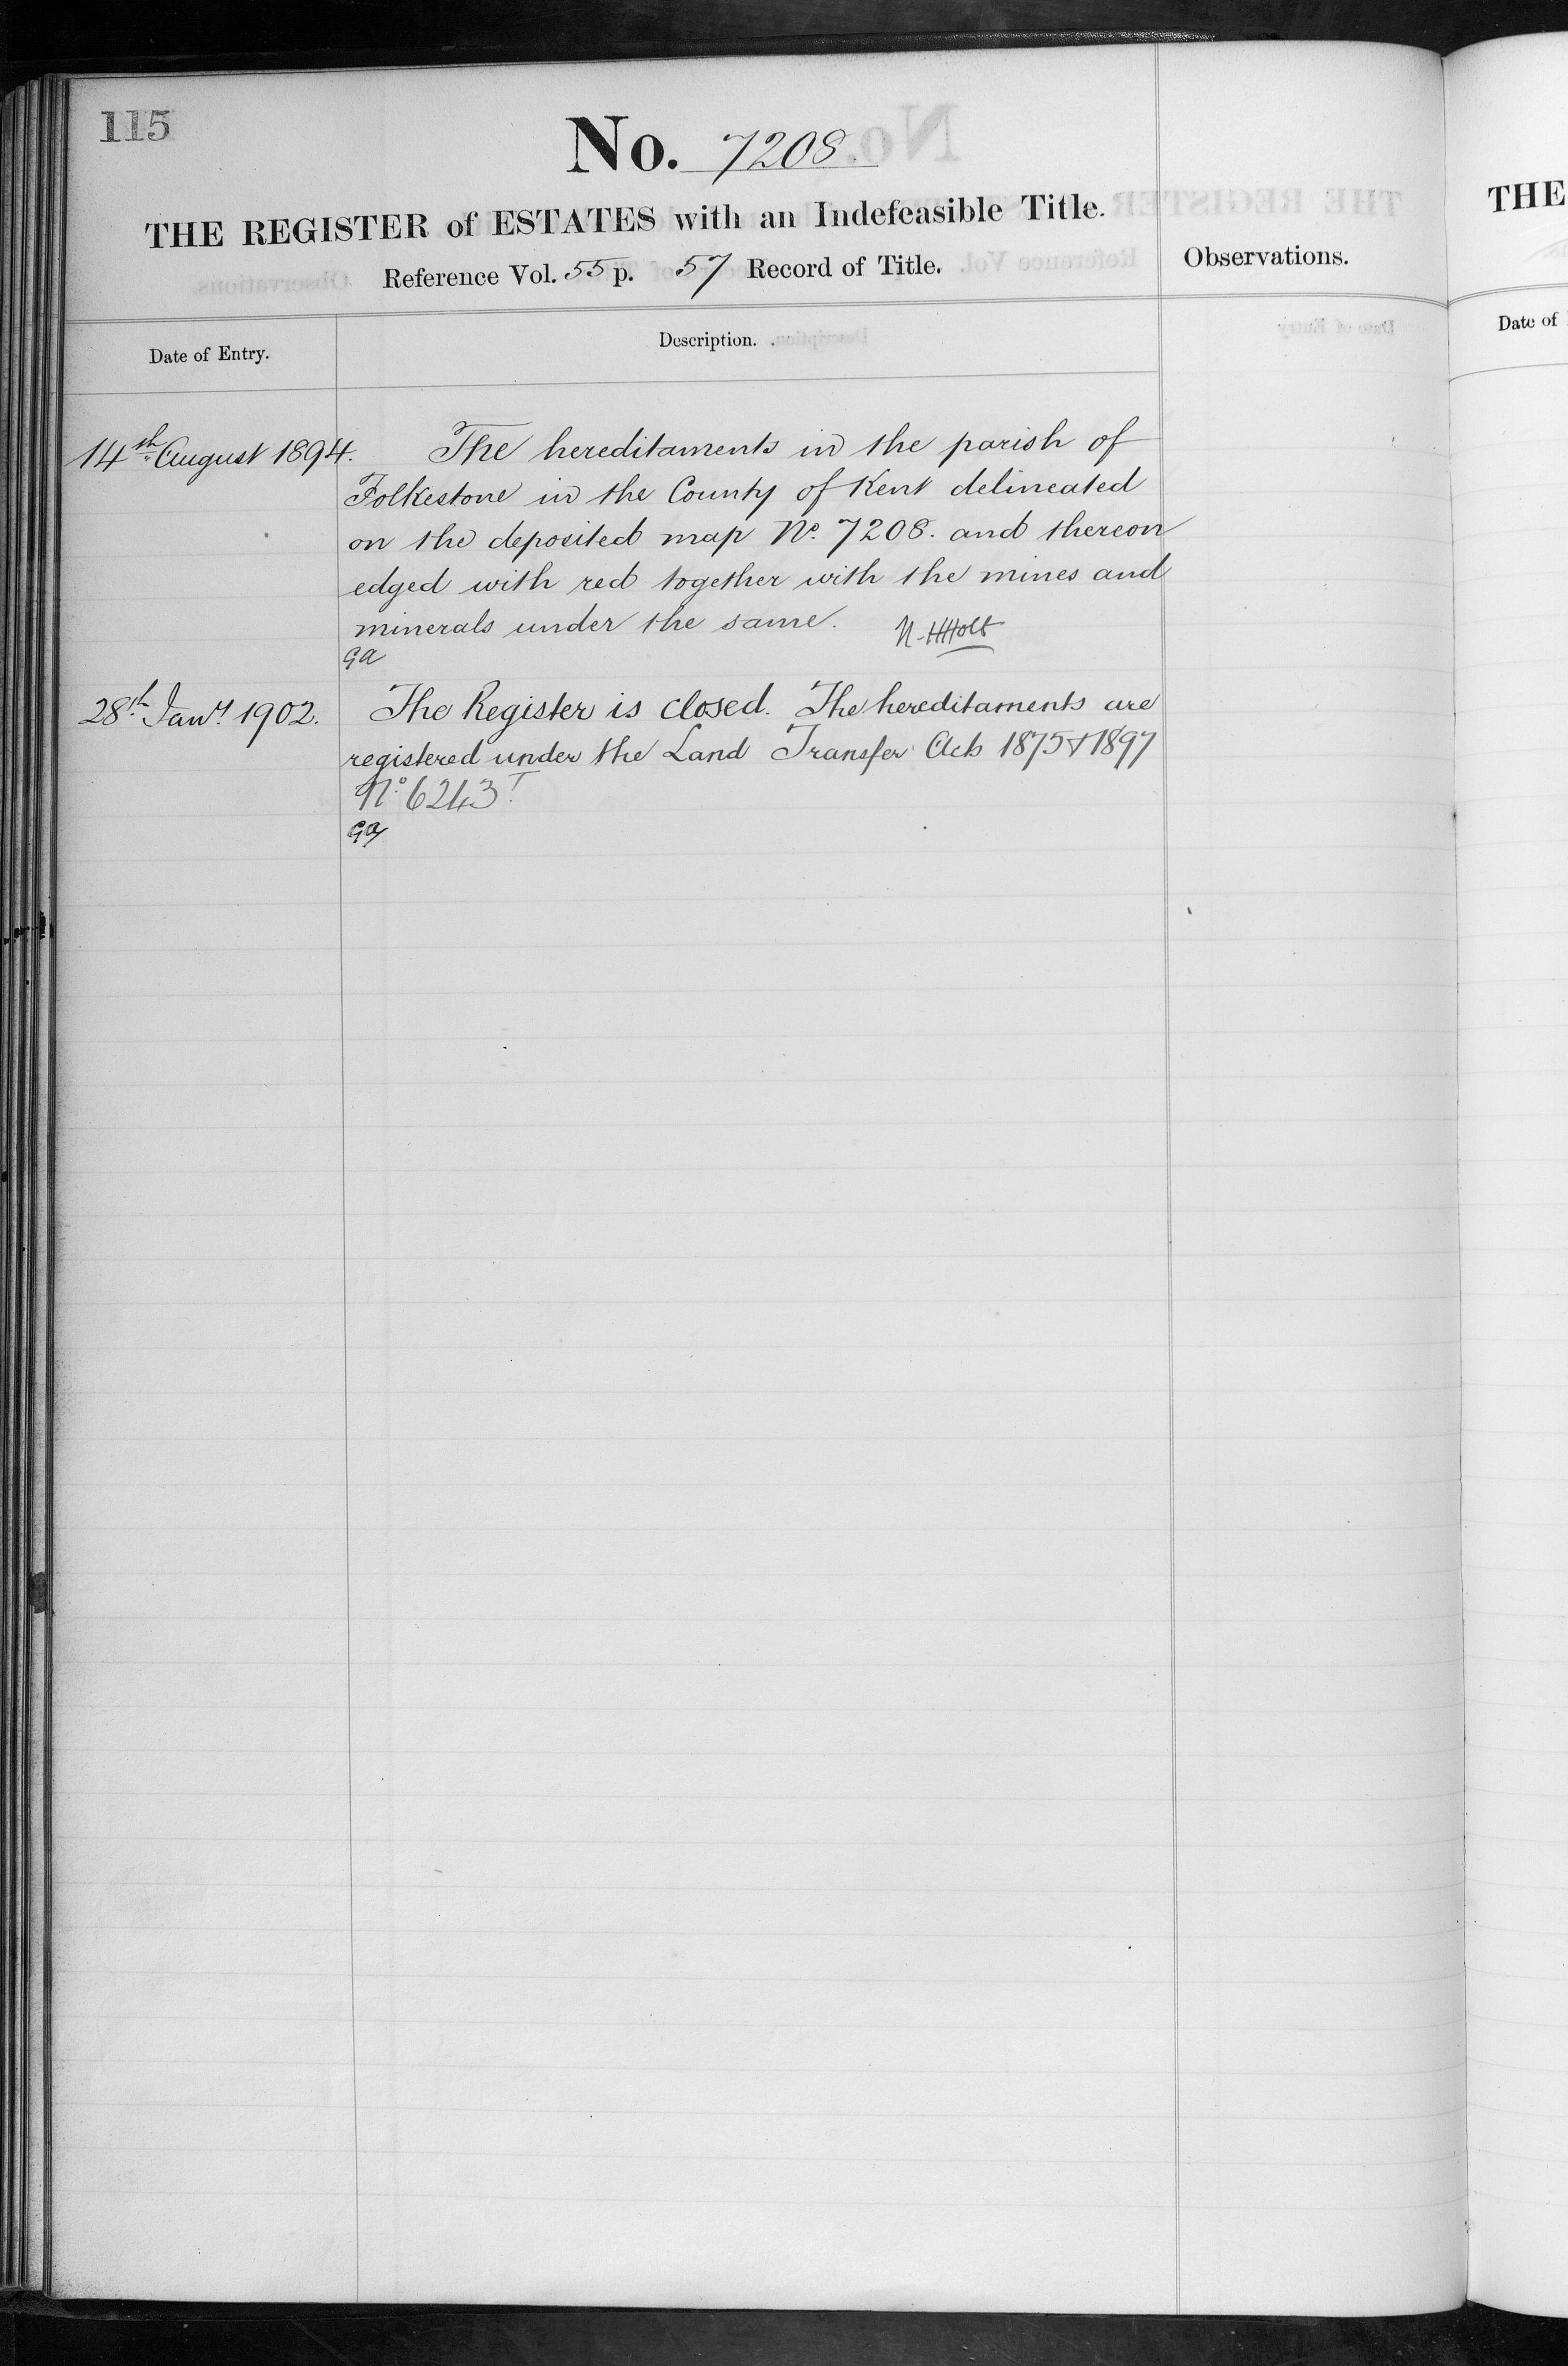 115
No. 7208.
THE REGISTER of ESTATES with an Indefeasible Title.
Reference Vol. 55 p. 57 Record of Title.
Observations.
Date of Entry.
Description.
14th August 1894.
The hereditaments in the parish of
Folkestone in the County of Kent delineated
on the deposited map No. 7208. and thereon
edged with red together with the mines and
minerals under the same. N. H Holt
GA
28th Jany. 1902.
The Register is closed. The hereditaments are
registered under the Land Transfer Acts 1875 & 1897
No. 6243T.
GA
THE
Date of